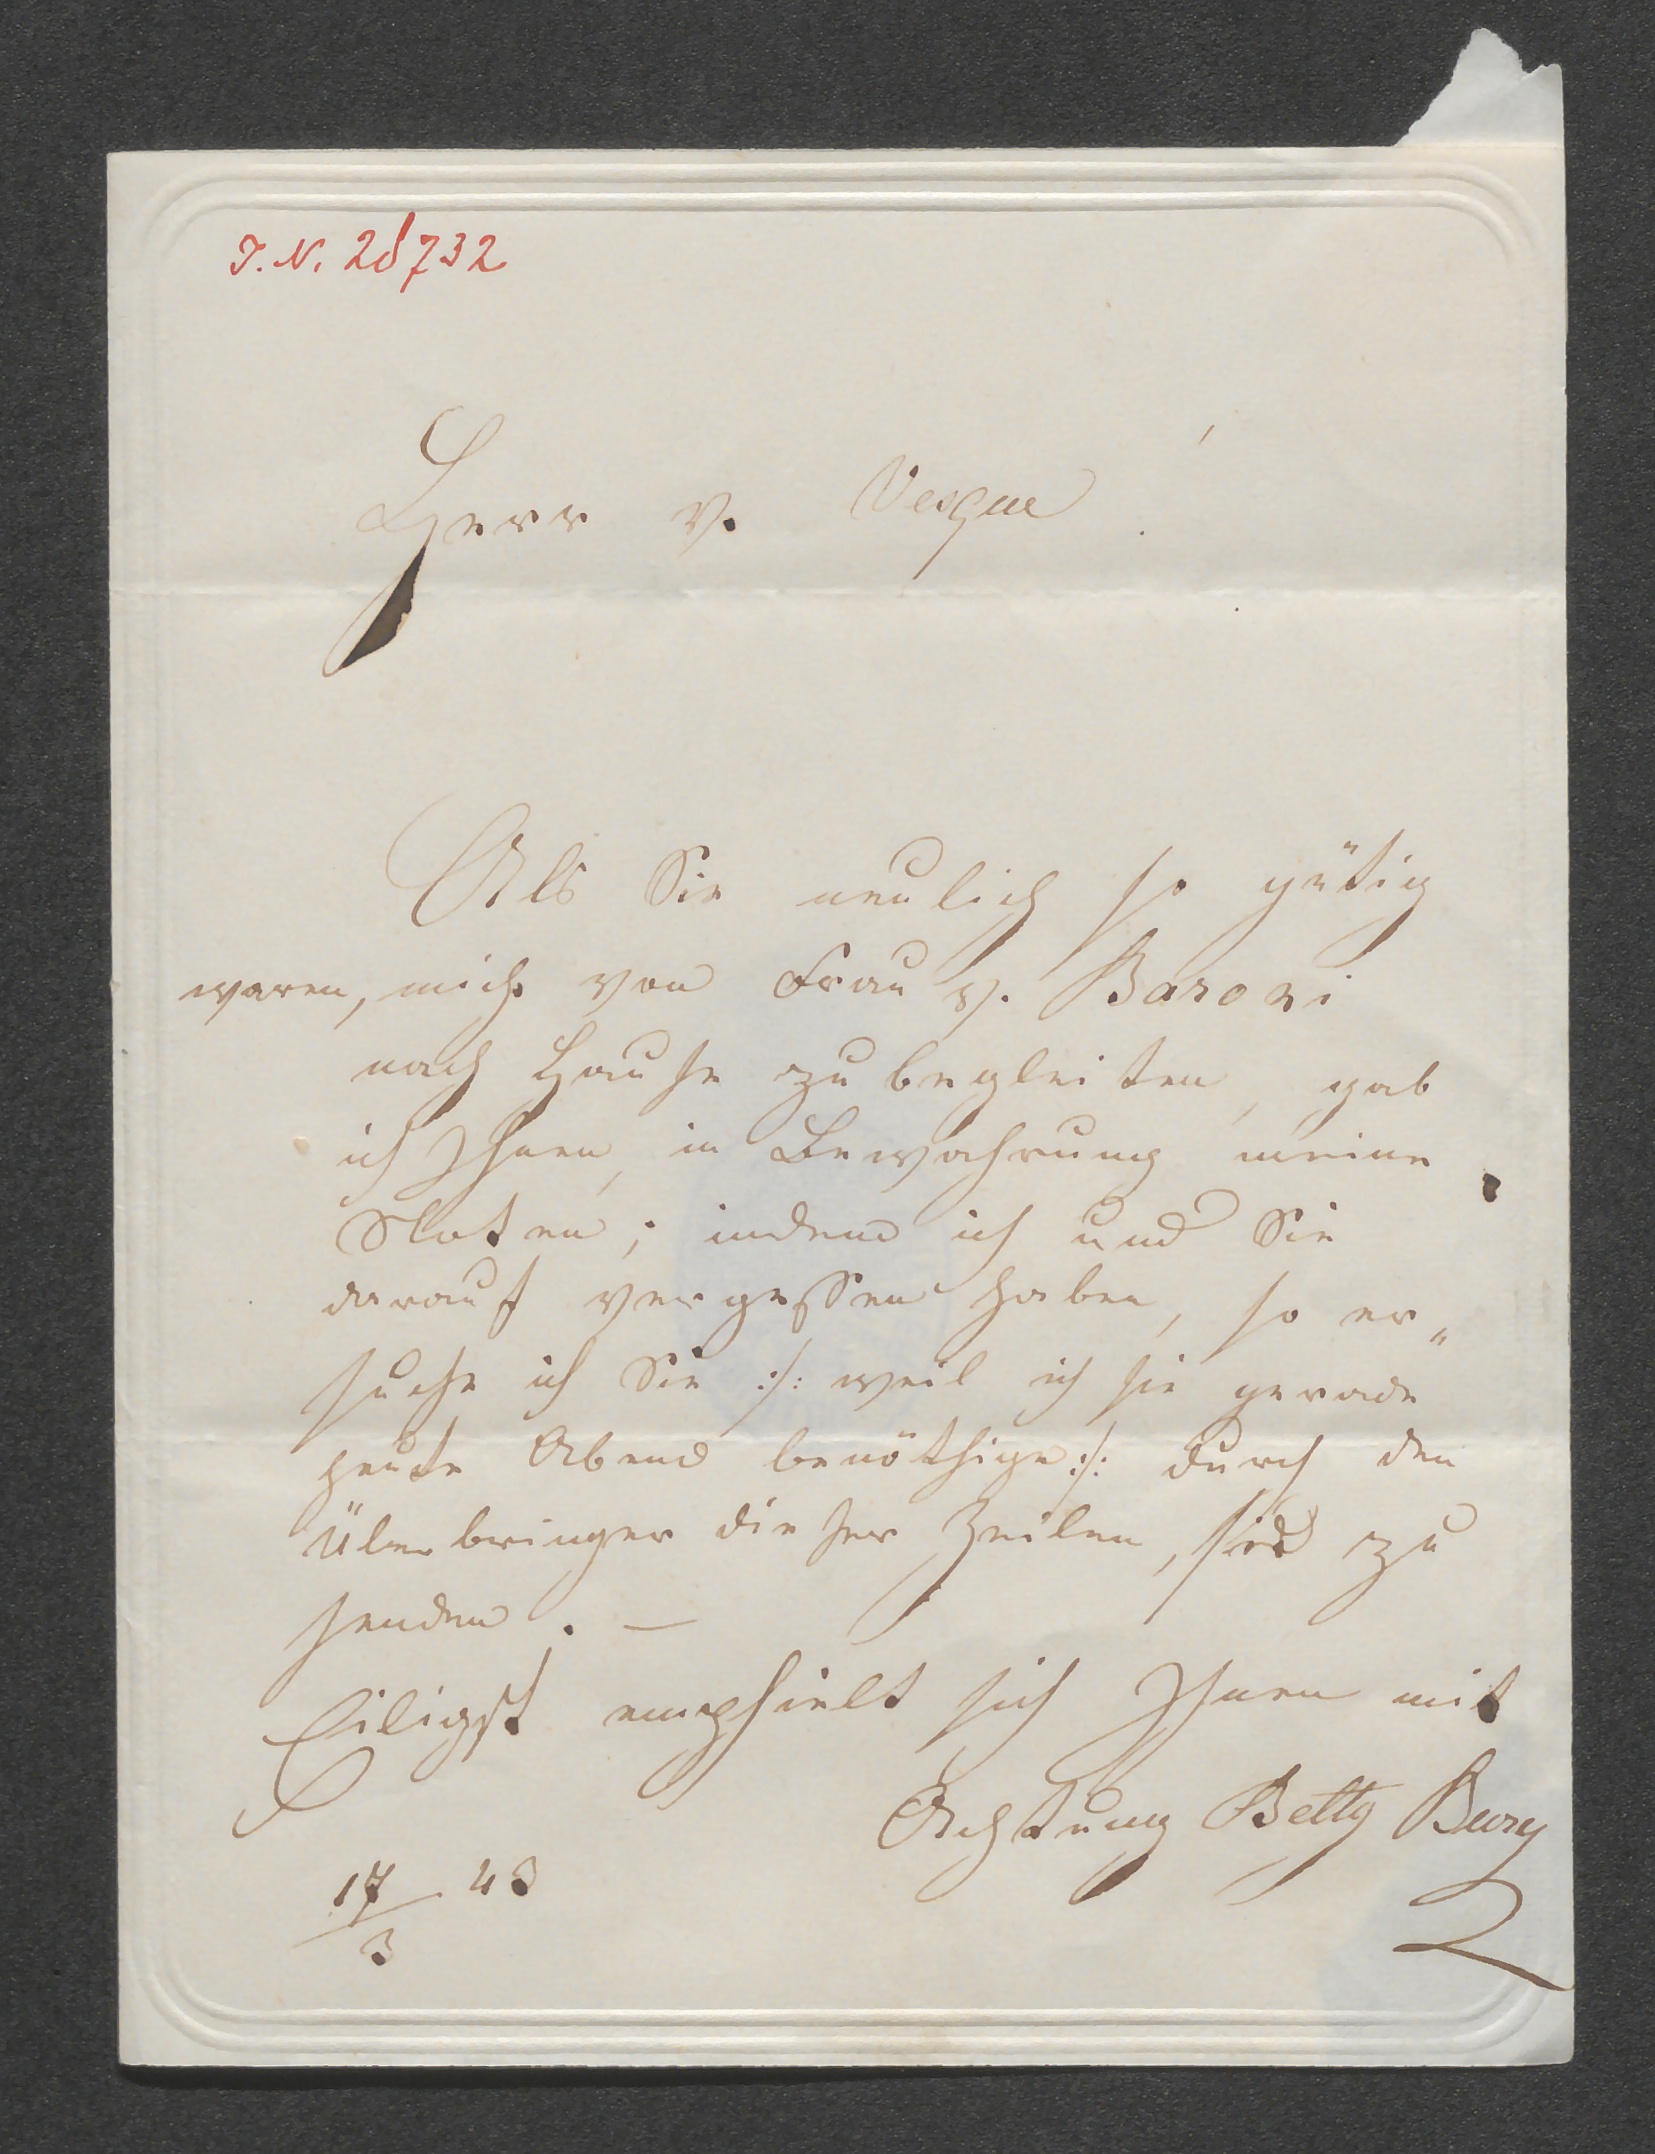 J. N. 28732
Herr v. Vesque
Als Sie neulich so gütig
waren, mich von Frau v. Baroni
nach Hause zu begleiten, gab
ich Ihnen, in Bewahrung meine
Noten; indem ich und Sie
darauf vergessen haben, so er„
suche ich Sie :/: weil ich sie gerade
heute Abend benöthige :/: durch den
Überbringer dieser Zeilen, sie zu
senden. —
Eiligst empfielt sich Ihnen mit
Achtung Betty Bury
17/3 43